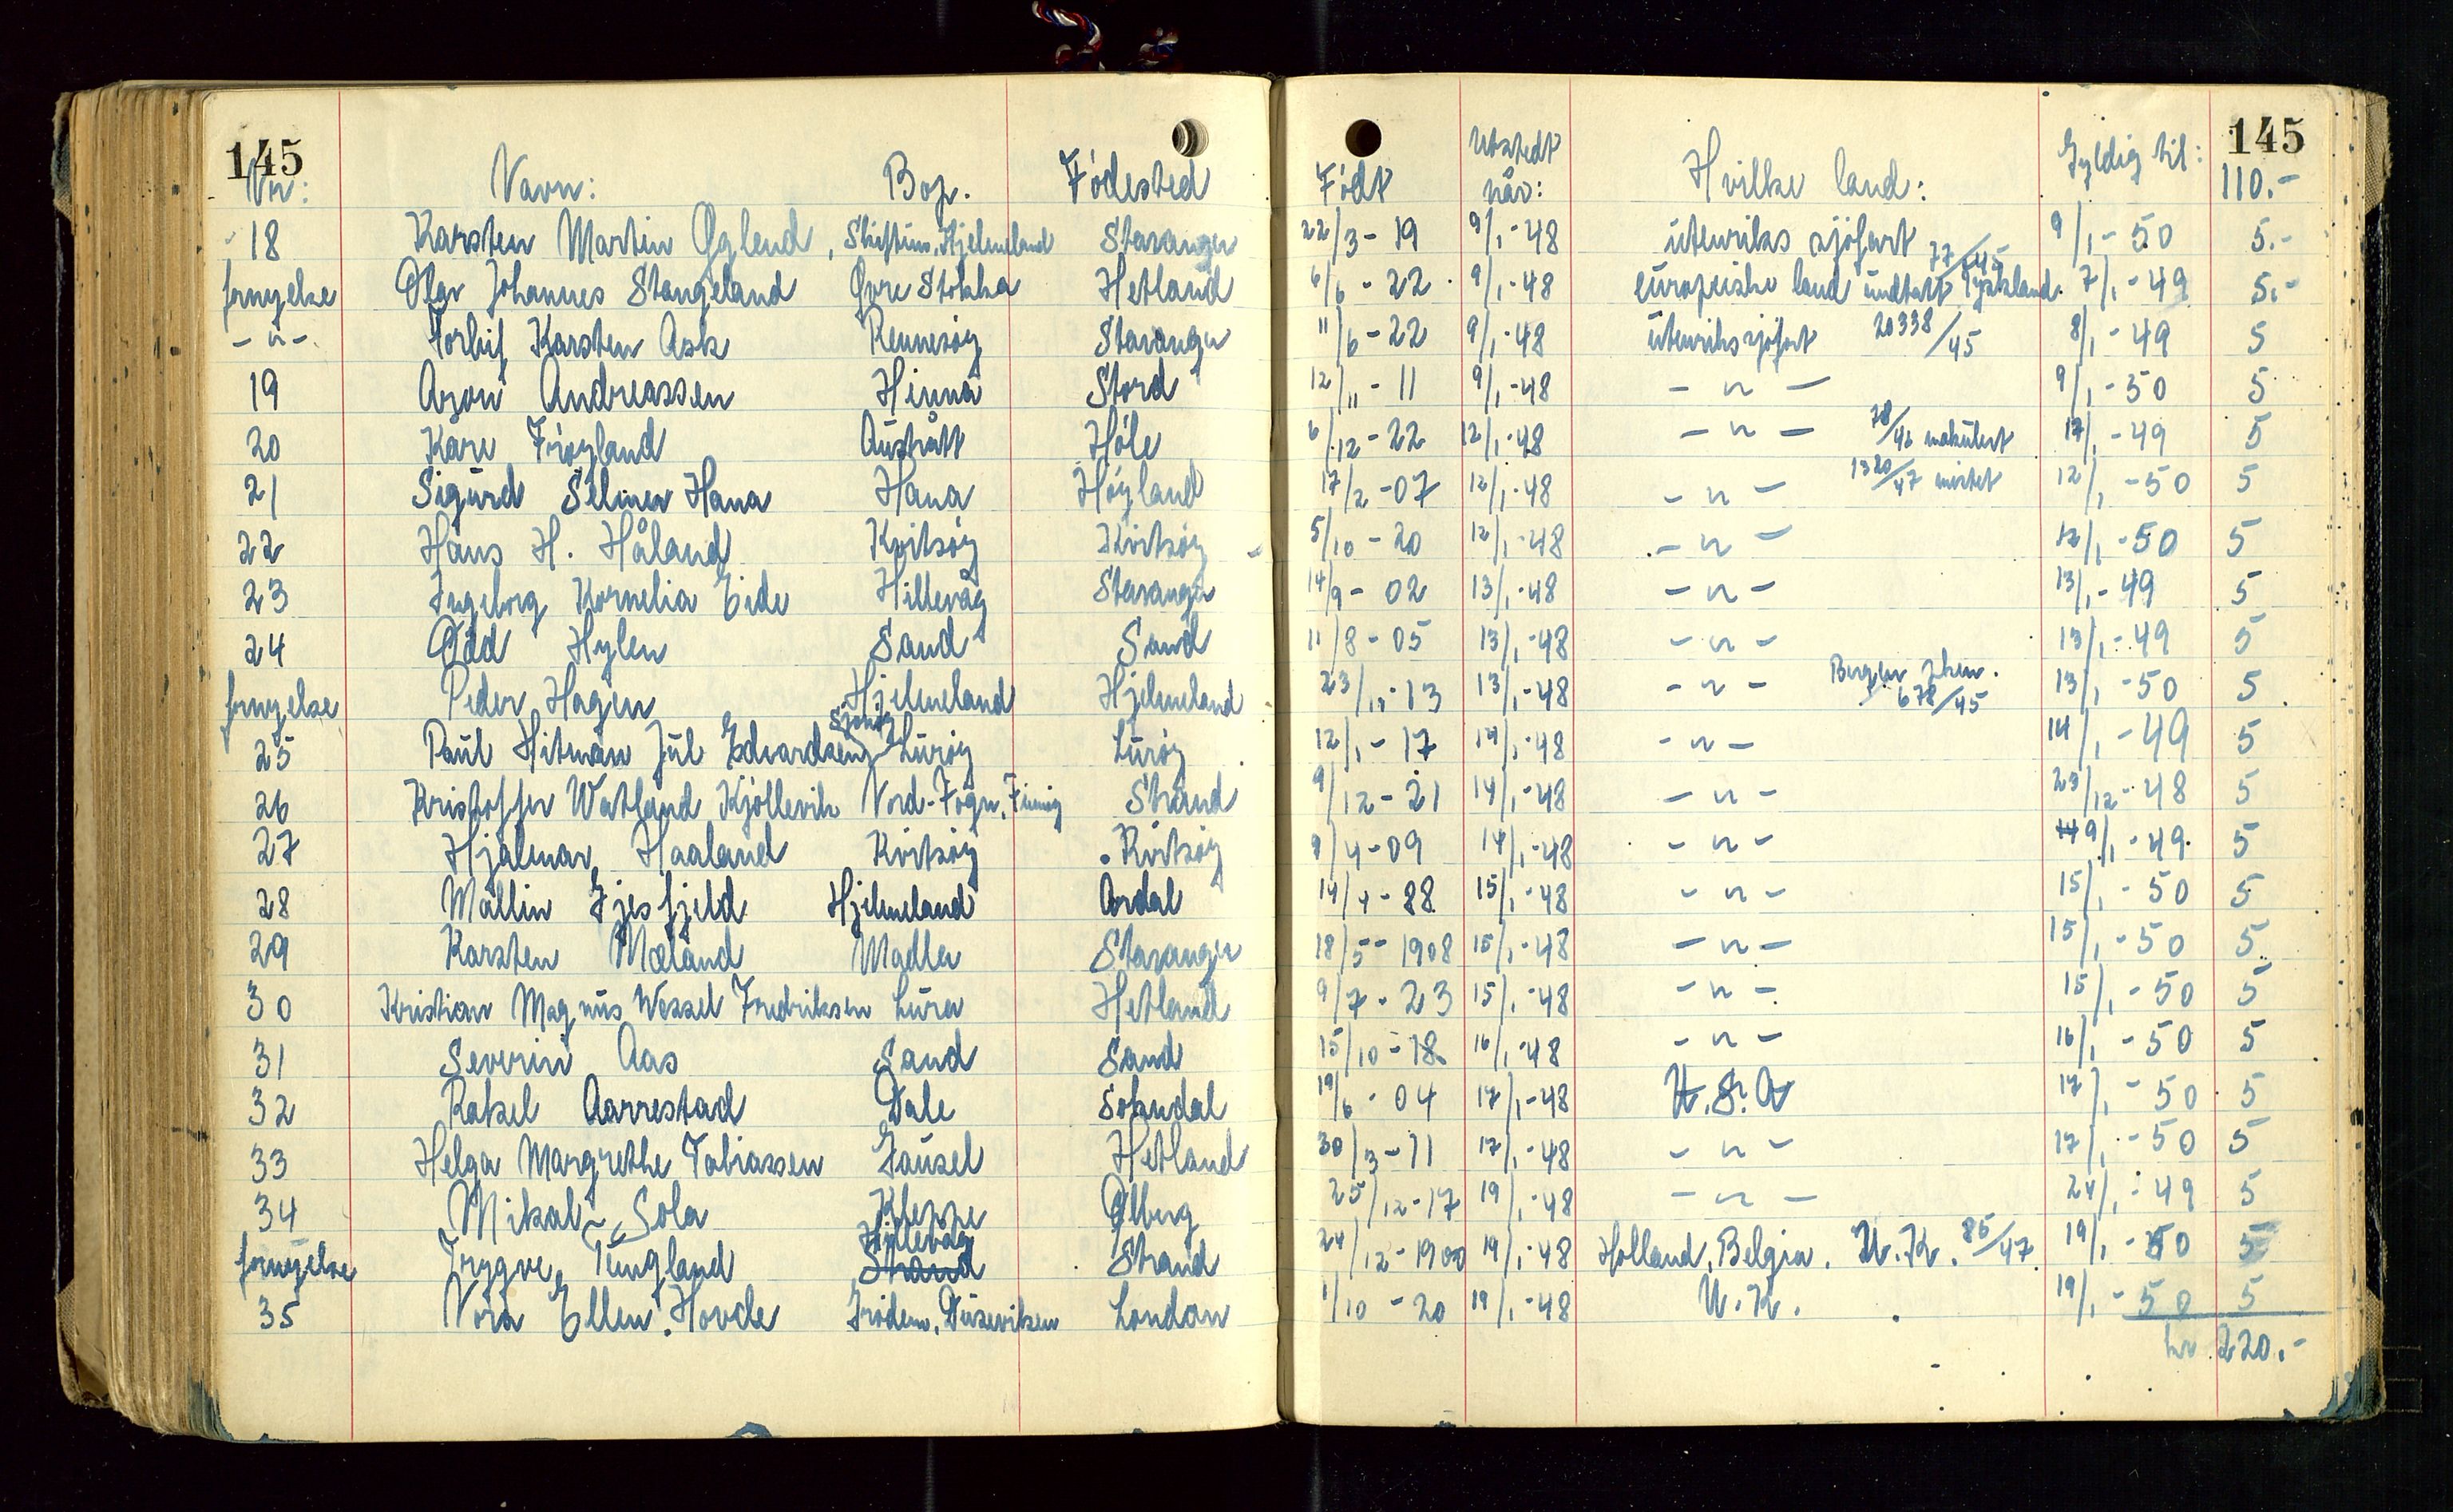 145 145
Nr: Navn: Bop. Fødested Født Utstedt når: Hvilke land: Gyldig til: 110.-
18 Karsten Martin Øglend, Skiftun, Hjelmeland Stavanger 22/3-19 9/1-48 utenriks sjøfart 9/1-50 5.-
fornyelse Olav Johannes Stangeland Øvre Stokka Hetland 6/6-22 9/1-48 europeiske land undtatt Tyskland. 77/45 7/1-49 5.-
-"- Torleif Karsten Ask Rennesøy Stavanger 11/6-22 9/1-48 utenriks sjøfart 20338/45 8/1-49 5
19 Aron Andreassen Hinna Stord 12/11-11 9/1-48 -"- 9/1-50 5
20 Kåre Frøyland Austrått Høle 6/12-22 12/1-48 -"- 78/42 makulert 12/1-49 5
21 Sigurd Selmer Hana Hana Høyland 17/2-07 12/1-48 -"- 1320/47 mistet 12/1-50 5
22 Hans H. Håland Kvitsøy Kvitsøy 5/10-20 12/1-48 -"- 12/1-50 5
23 Ingeborg Kornelia Eide Hillevåg Stavanger 14/9-02 13/1-48 -"- 13/1-49 5
24 Odd Hylen Sand Sand 11/8-05 13/1-48 -"- 13/1-49 5
fornyelse Peder Hagen Hjelmeland Hjelmeland 23/11-13 13/1-48 -"- Bergen 678/45 13/1-50 5
25 Paul Hitman Jul Edvardsen Lurøy Lurøy 12/1-17 14/1-48 -"- 14/1-49 5
26 Kristoffer Watland Kjøllevik Nord-Fogn, Finnøy Strand 9/12-21 14/1-48 -"- 23/12-48 5
27 Hjalmar Haaland Kvitsøy Kvitsøy 9/4-09 14/1-48 -"- 9/1-49 5
28 Mallin Gjesfjeld Hjelmeland Årdal 14/4-88 15/1-48 -"- 15/1-50 5
29 Karsten Mæland Madla Stavanger 18/5-1908 15/1-48 -"- 15/1-50 5
30 Kristian Magnus Wessel Fredriksen Lura Hetland 9/7-23 15/1-48 -"- 15/1-50 5
31 Severin Aas Sand Sand 15/10-18 16/1-48 -"- 16/1-50 5
32 Rakel Aarrestad Dale Sokndal 19/6-04 17/1-48 U.S.A 17/1-50 5
33 Helga Margrethe Tobiassen Gausel Hetland 30/3-11 17/1-48 -"- 17/1-50 5
34 Mikal Sola Kleppe Ølberg 25/12-17 19/1-48 -"- 24/1-49 5
fornyelse Trygve Tungland Strand Hillevåg Strand 24/12-1900 19/1-48 Holland, Belgia. U.K. 85/47 19/1-50 5
35 Nora Ellen Hovde Grødem, Duseviken London 1/10-20 19/1-48 U.K. 19/1-50 5
kr 220.-